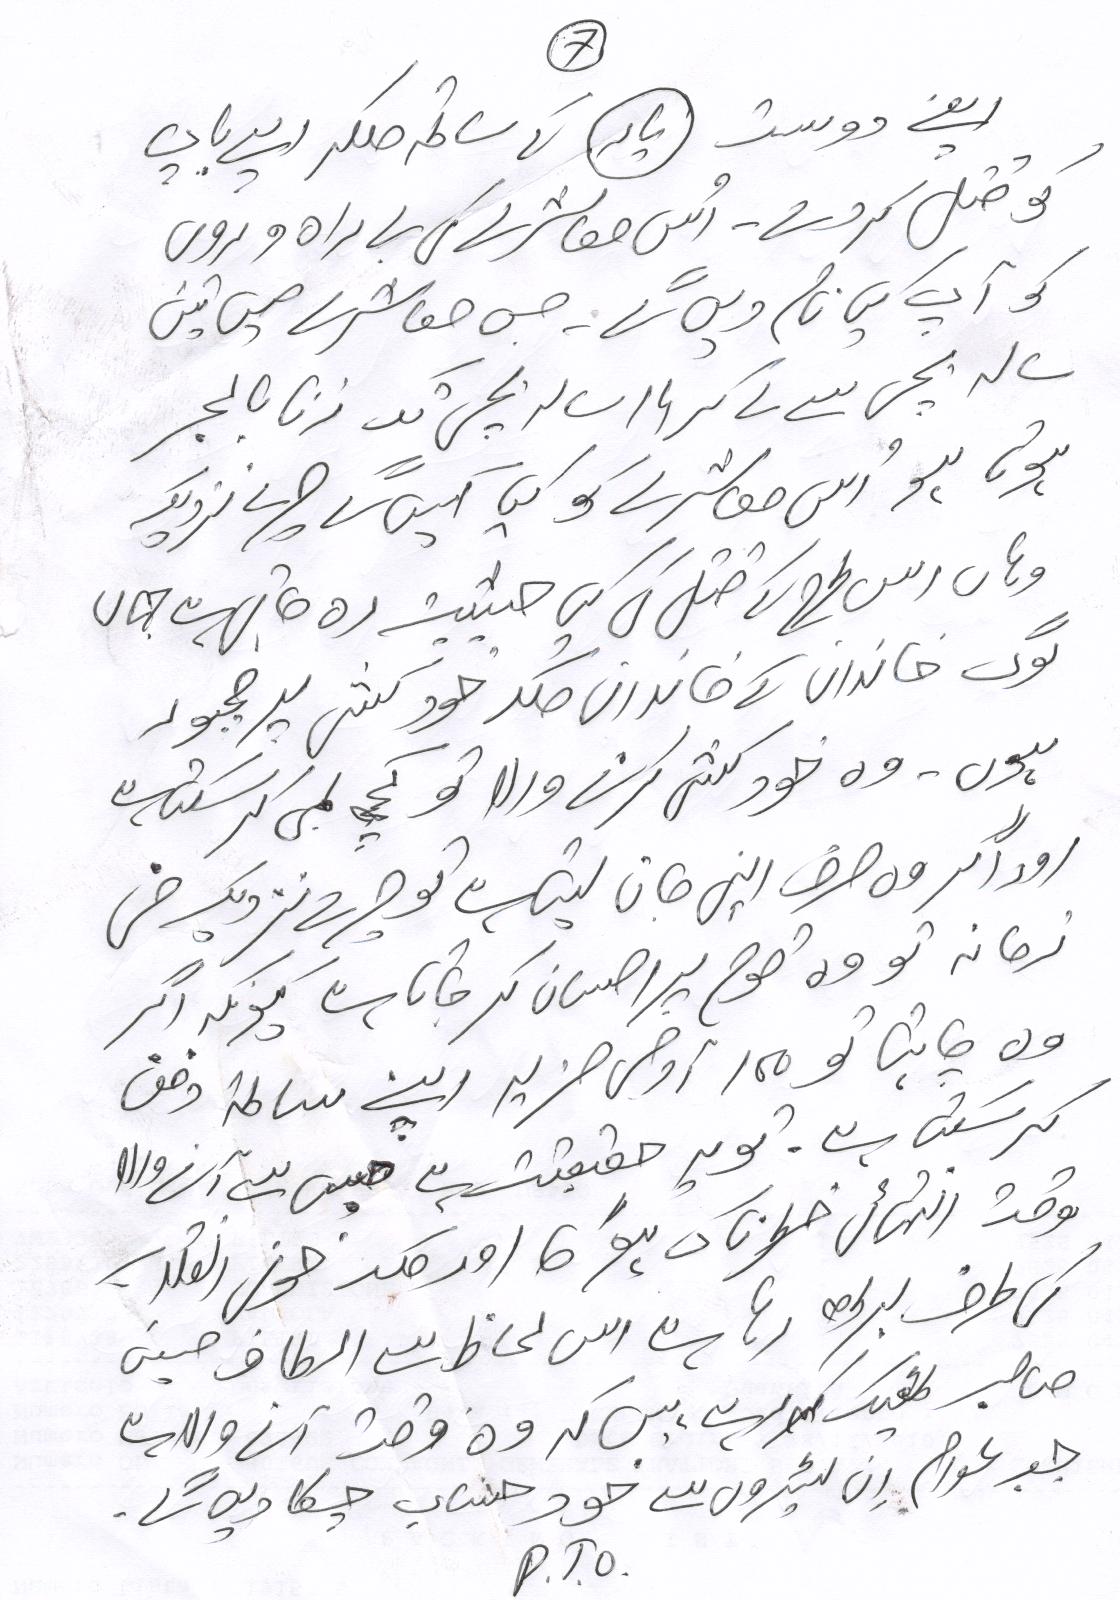 7
اپنے دوست یار کے ساتھ ملکر اپنے باپ
کو قتل کردے۔ اُس معاشرے کی بے راہ روی
کو آپ کیا نام دیں گے۔ جس معاشرے میں تین
سالہ بچی سے لے کر سالہ بچی تک زنا بالجبر
ہوتا ہو اُس معاشرے کو کیا کہیں گے میرے نزدیک
وہاں اس طرح کے قتل کی کیا حیثیت رہ جاتی ہے جہاں
لوگ خاندان کے خاندان ملکر خود کشی پر مجبور
ہوں۔ وہ خود کشی کرنے والا تو کچھ بھی کر سکتا ہے
اور اگر وہ صرف اپنی جان لیتا ہے تو میرے نزدیک فی
زمانہ تو وہ قوم پر احسان کر جاتا ہے کیونکہ اگر
وہ چاہتا تو 100 آدمی مزید اپنے ساتھ دفن
کر سکتا ہے۔ تو یہ حقیقت ہے جس سے آنے والا
وقت انتہائی خطرناک ہو گا اور ملک خونی انقلاب
کی طرف بڑھ رہا ہے اس لحاظ سے الطاف حسین
صاحب ٹھیک کہہ رہے ہیں کہ وہ وقت آنے والا ہے
جب عوام اِن لٹیروں سے خود حساب چکا دیں گے۔
P.T.O.